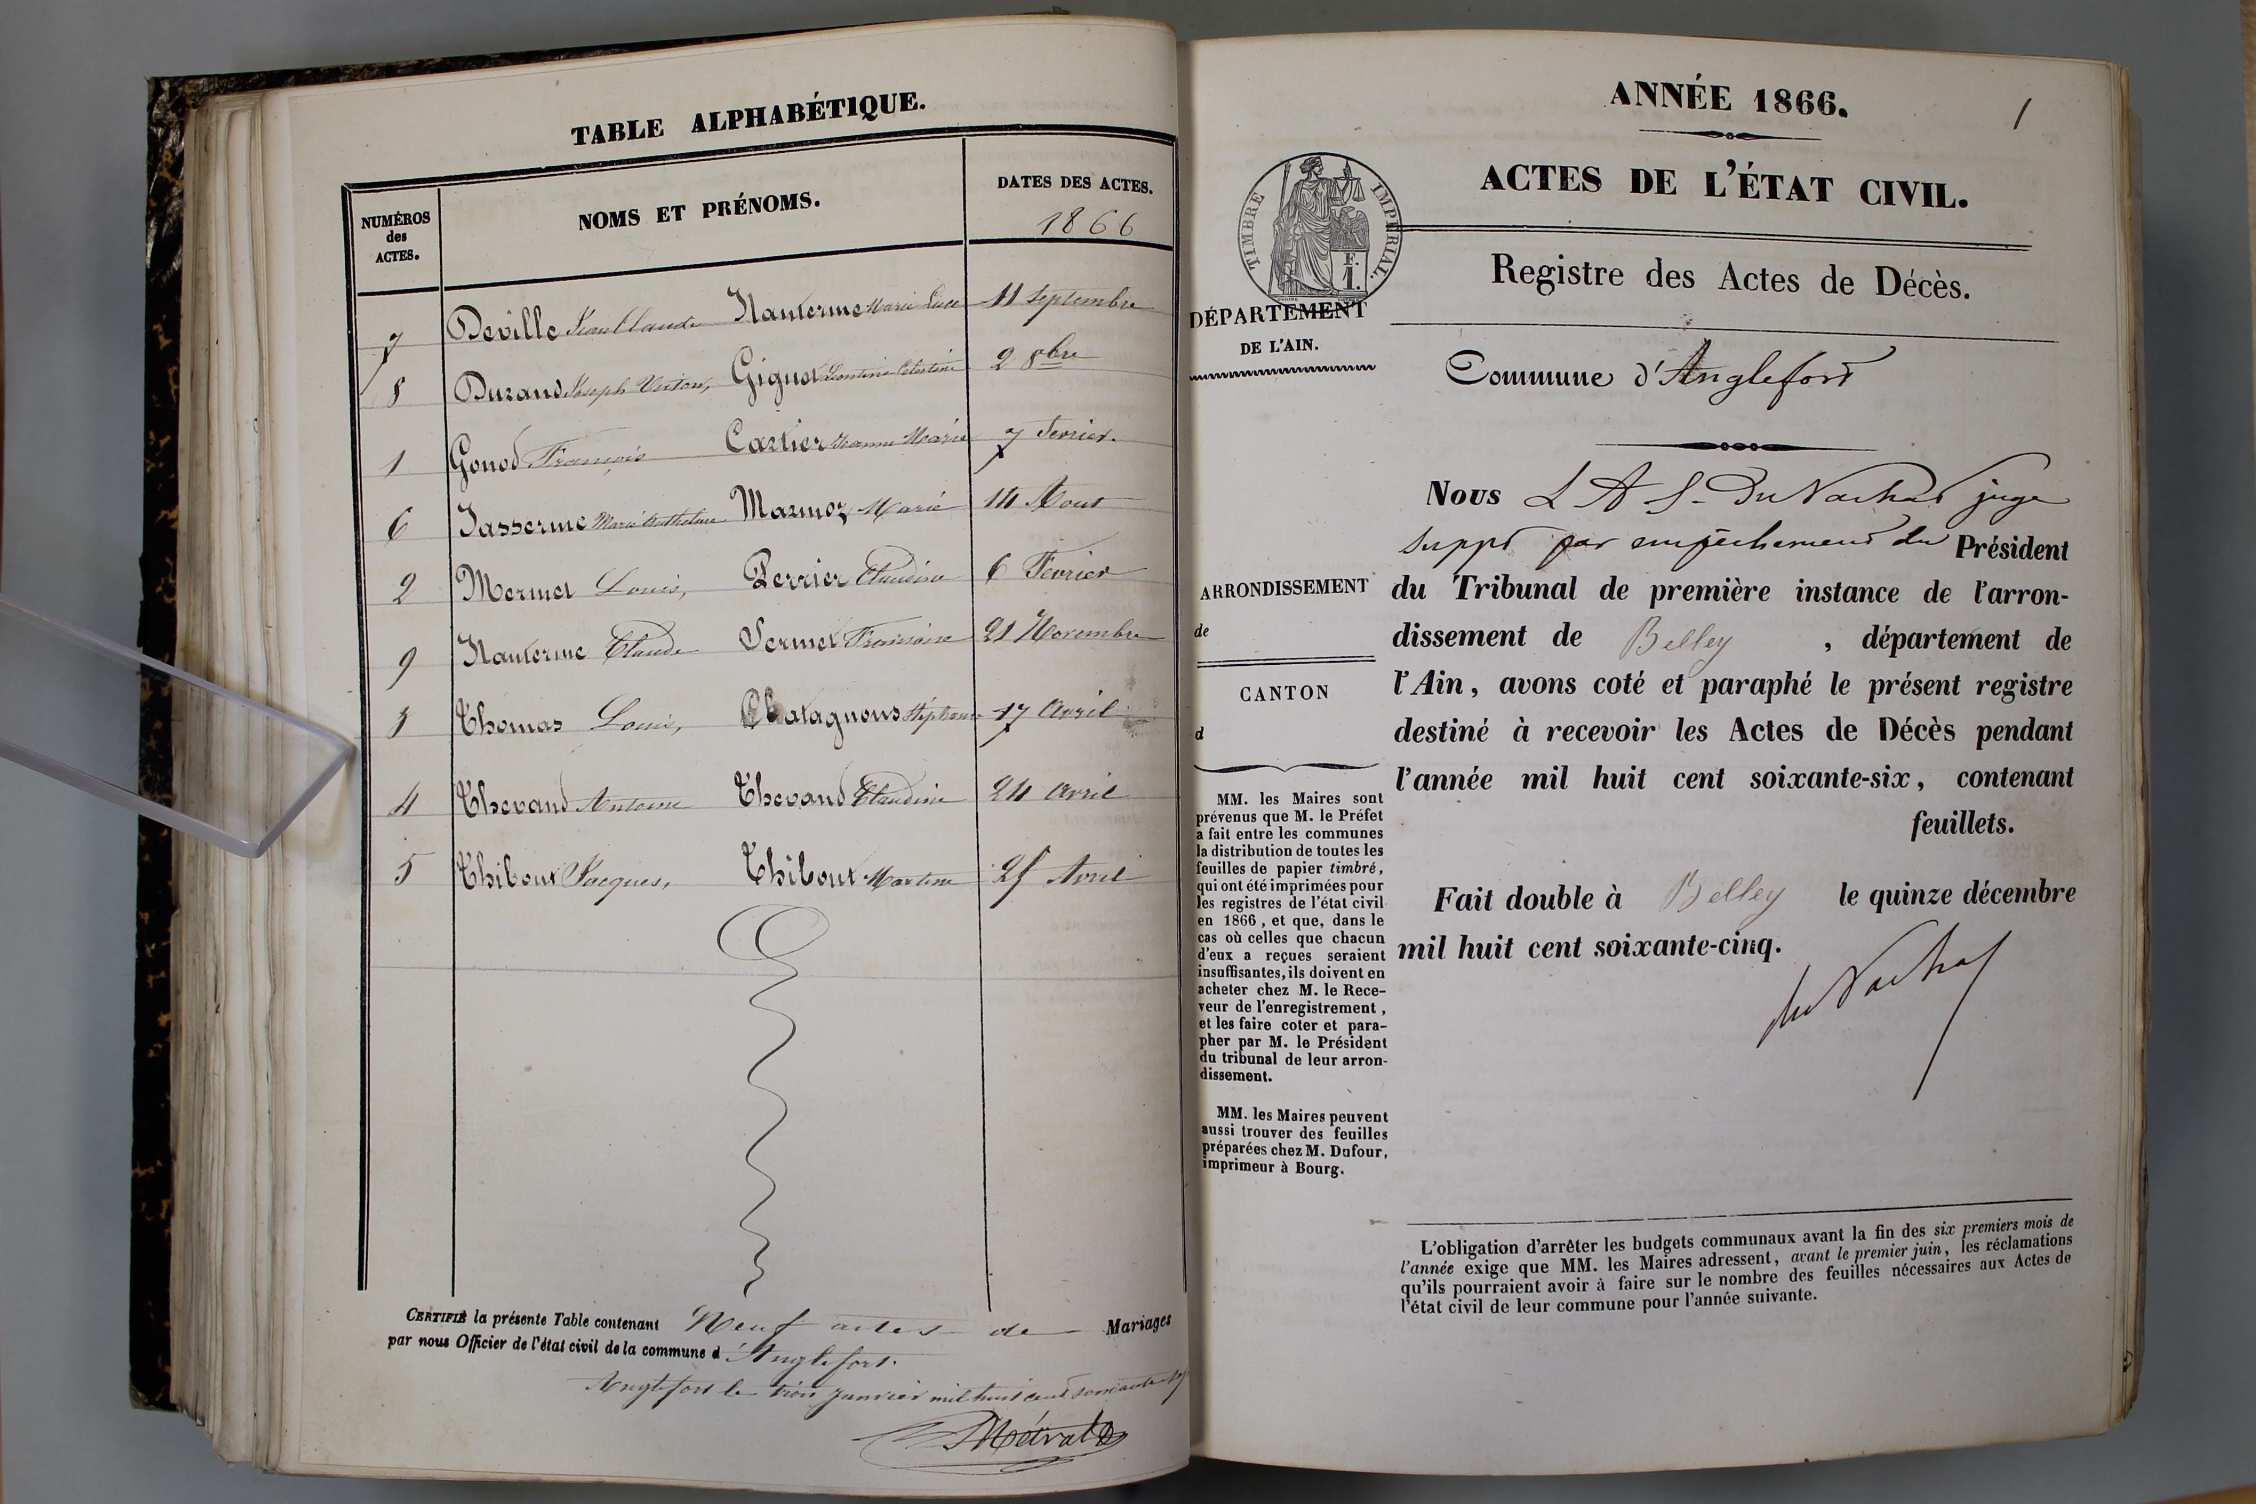 TABLE ALPHABÉTIQUE.
NUMÉROS
des
ACTES.
NOMS ET PRÉNOMS.
DATES DES ACTES.
1866
7 Deville Jean Claude Nanterme Marie Luce 11 Septembre
8 Durand Joseph Victor, Gignot Célestine 2 8bre
1 Gonod François Cartier Jeanne Marie 7 Fevrier.
6 Jasserme Marie Mazmoz Marie 14 Aout
2 Mermet Louis, Perrier Claudine 6 Fevrier
9 Nanterme Claude Sermet Françoise 21 Novembre
3 Thomas Louis, Chatagnous Stéphanie 17 Avril
4 Thevand Antoine Thevand Claudine 24 Avril
5 Thiboux Jacques, Thiboux Martine 25 Avril
CERTIFIÉ la présente Table contenant Neuf actes de Mariages
par nous Officier de l'état civil de la commune d'Anglefort.
Anglefort le trois janvier mil huit cent soixante
Métral
ANNÉE 1866.
1
ACTES DE L'ÉTAT CIVIL.
TIMBRE IMPÉRIAL.
F.
1.
Registre des Actes de Décès.
DÉPARTEMENT
DE L'AIN.
Commune d'Anglefort
Nous L A S. Du Nachat juge
suppt par empêchement du Président
ARRONDISSEMENT
de
CANTON
d
du Tribunal de première instance de l'arron-
dissement de Belley, département de
l'Ain, avons coté et paraphé le présent registre
destiné à recevoir les Actes de Décès pendant
l'année mil huit cent soixante-six, contenant
feuillets.
Fait double à Belley le quinze décembre
mil huit cent soixante-cinq.
du Nachat
MM. les Maires sont
prévenus que M. le Préfet
a fait entre les communes
la distribution de toutes les
feuilles de papier timbré,
qui ont été imprimées pour
les registres de l'état civil
en 1866, et que, dans le
cas où celles que chacun
d'eux a reçues seraient
insuffisantes, ils doivent en
acheter chez M. le Rece-
veur de l'enregistrement,
et les faire coter et para-
pher par M. le Président
du tribunal de leur arron-
dissement.
MM. les Maires peuvent
aussi trouver des feuilles
préparées chez M. Dufour,
imprimeur à Bourg.
L'obligation d'arrêter les budgets communaux avant la fin des six premiers mois de
l'année exige que MM. les Maires adressent, avant le premier juin, les réclamations
qu'ils pourraient avoir à faire sur le nombre des feuilles nécessaires aux Actes de
l'état civil de leur commune pour l'année suivante.